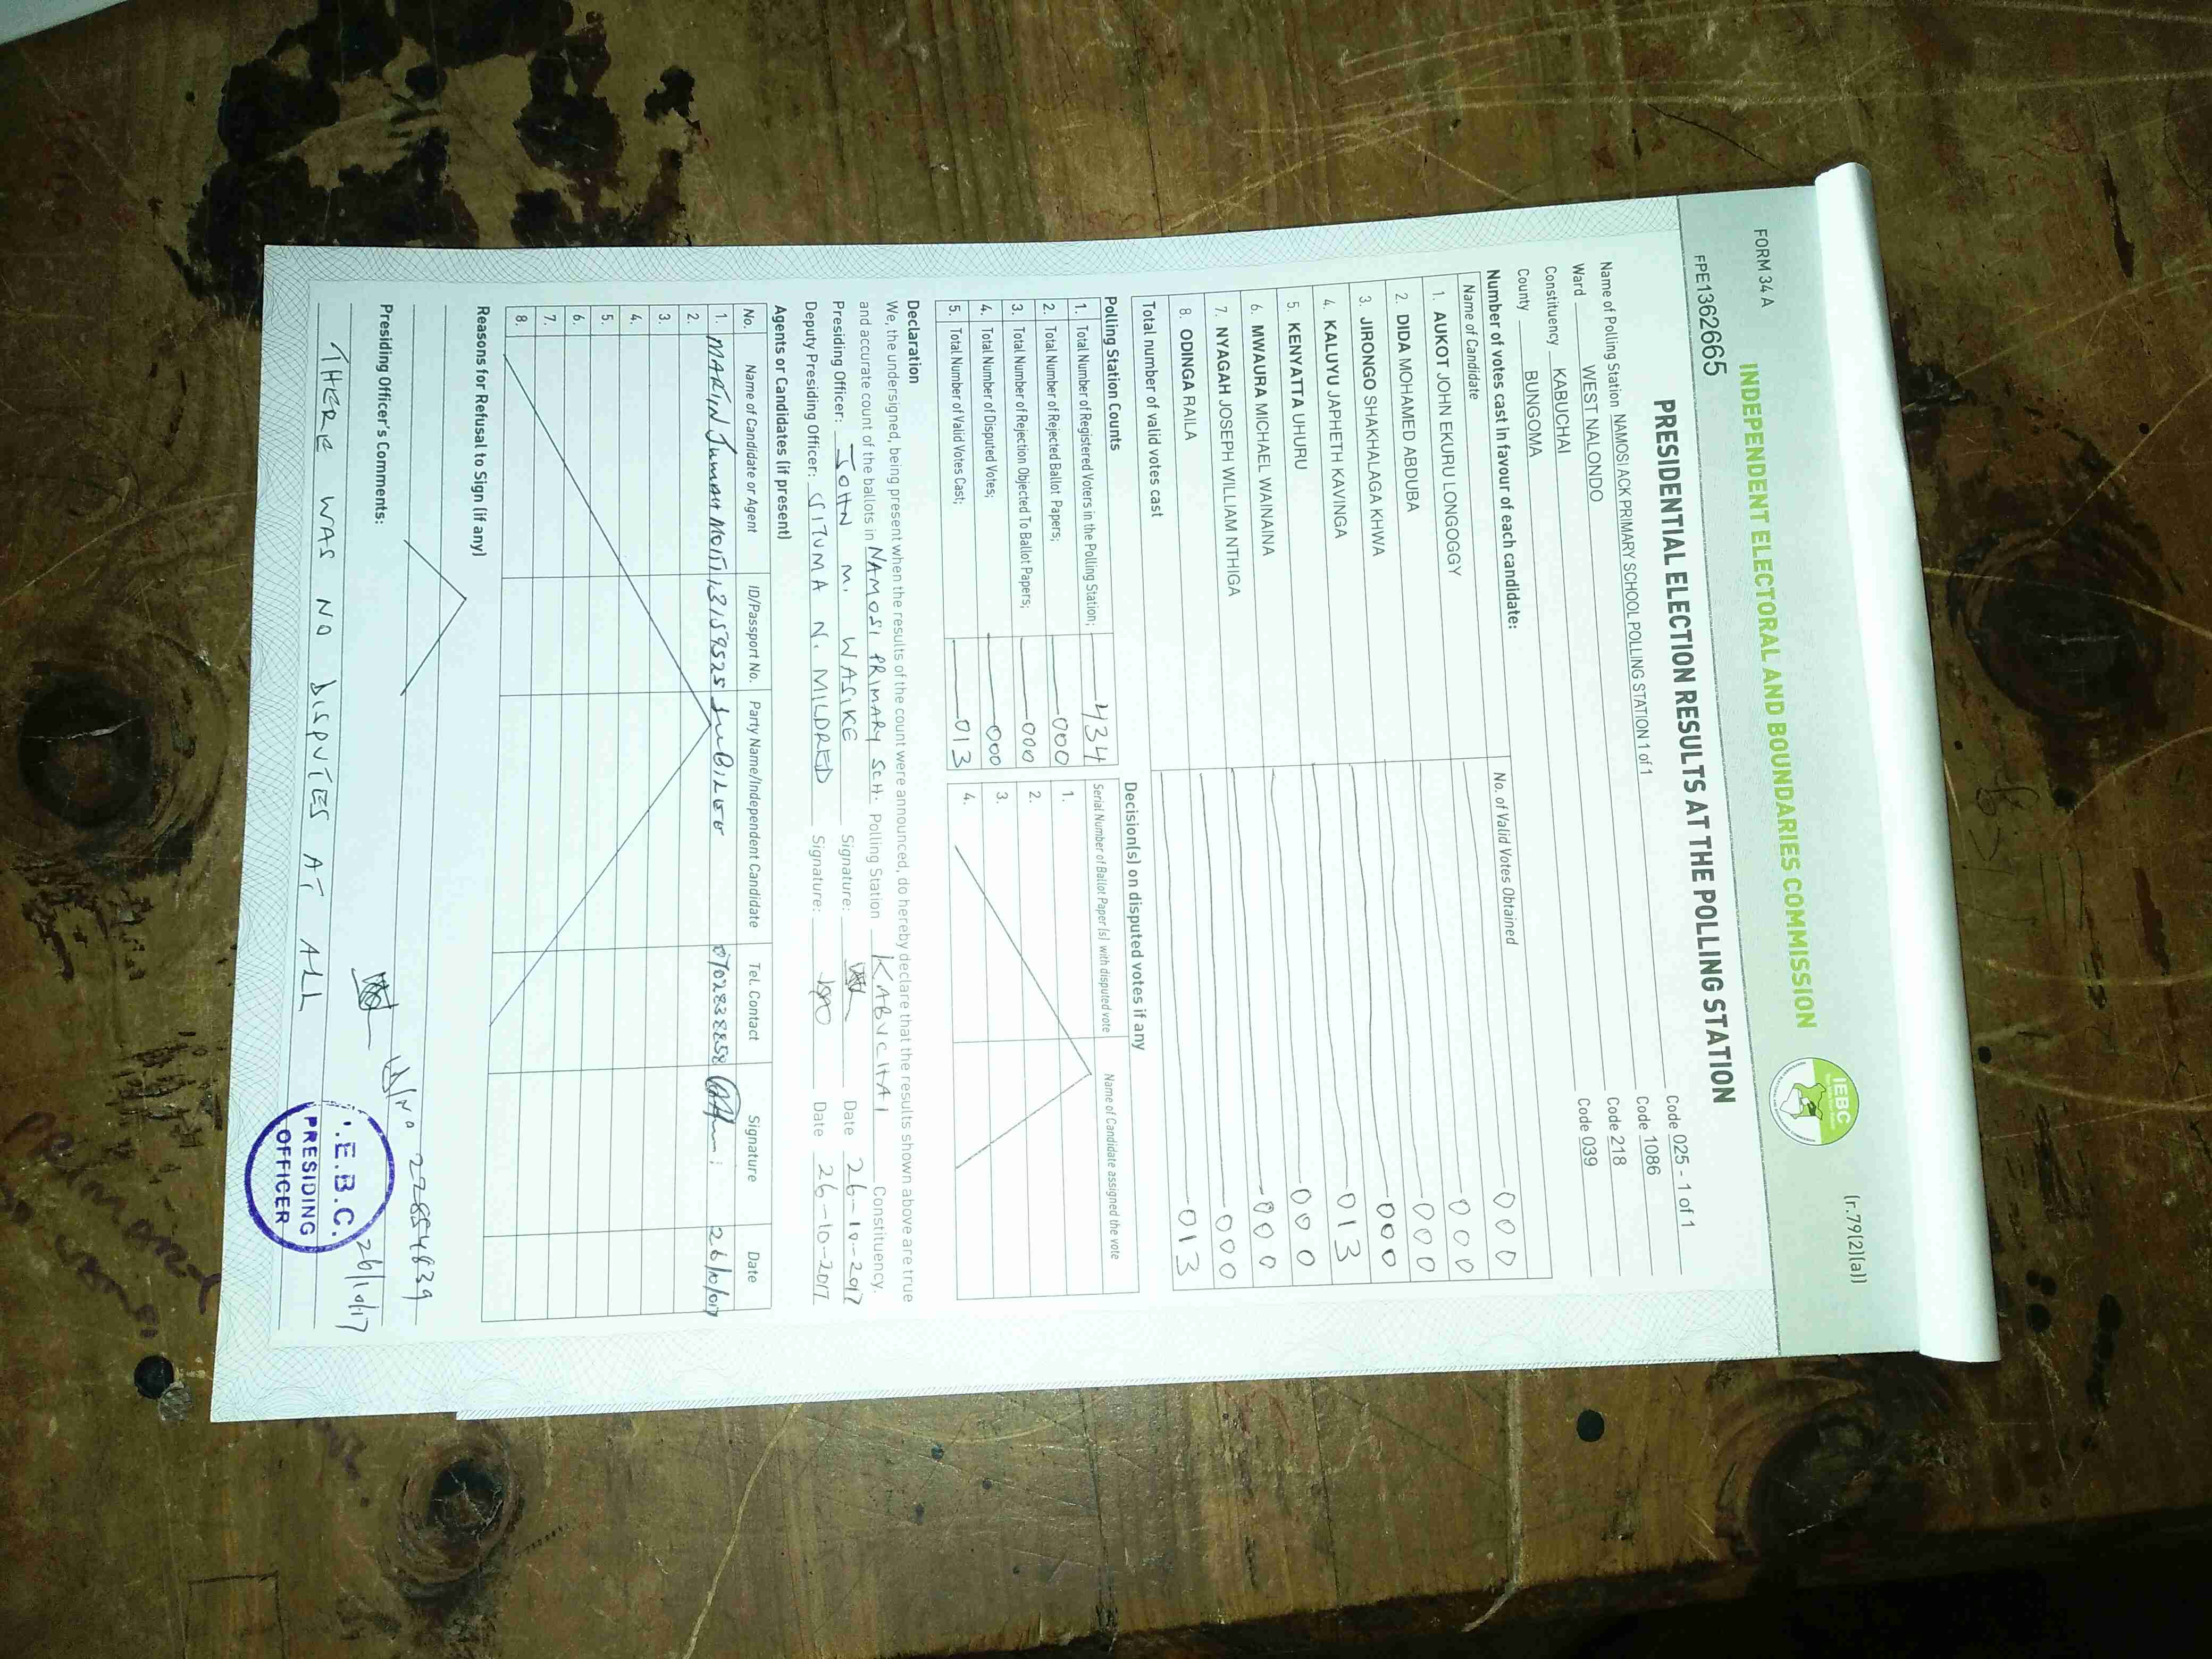 FORM 34 A
(r.79(2)(a))
INDEPENDENT ELECTORAL AND BOUNDARIES COMMISSION
IEBC
FPE1362665
PRESIDENTIAL ELECTION RESULTS AT THE POLLING STATION
Name of Polling Station NAMOSI ACK PRIMARY SCHOOL POLLING STATION 1 of 1 Code 025 - 1 of 1
Ward WEST NALONDO Code 1086
Constituency KABUCHAI Code 218
County BUNGOMA Code 039
Number of votes cast in favour of each candidate:
Name of Candidate No. of Valid Votes Obtained
1. AUKOT JOHN EKURU LONGOGGY 000
2. DIDA MOHAMED ABDUBA 000
3. JIRONGO SHAKHALAGA KHWA 000
4. KALUYU JAPHETH KAVINGA 000
5. KENYATTA UHURU 013
6. MWAURA MICHAEL WAINAINA 000
7. NYAGAH JOSEPH WILLIAM NTHIGA 000
8. ODINGA RAILA 000
Total number of valid votes cast 013
Polling Station Counts
1. Total Number of Registered Voters in the Polling Station; 434
2. Total Number of Rejected Ballot Papers; 000
3. Total Number of Rejection Objected To Ballot Papers; 000
4. Total Number of Disputed Votes; 000
5. Total Number of Valid Votes Cast; 013
Decision(s) on disputed votes if any
Serial Number of Ballot Paper (s) with disputed vote Name of Candidate assigned the vote
1.
2.
3.
4.
Declaration
We, the undersigned, being present when the results of the count were announced, do hereby declare that the results shown above are true
and accurate count of the ballots in NAMOSI PRIMARY SCH. Polling Station KABUCHAI Constituency.
Presiding Officer: JOHN M. WASIKE Signature: Date 26-10-2017
Deputy Presiding Officer: SITUMA N. MILDRED Signature: Date 26-10-2017
Agents or Candidates (if present)
No. Name of Candidate or Agent ID/Passport No. Party Name/Independent Candidate Tel. Contact Signature Date
1. JUMAH JUBILEE
2.
3.
4.
5.
6.
7.
8.
Reasons for Refusal to Sign (if any)
Presiding Officer's Comments:
THERE WAS NO DISPUTES AT ALL
26/10/17
I.E.B.C.
PRESIDING
OFFICER